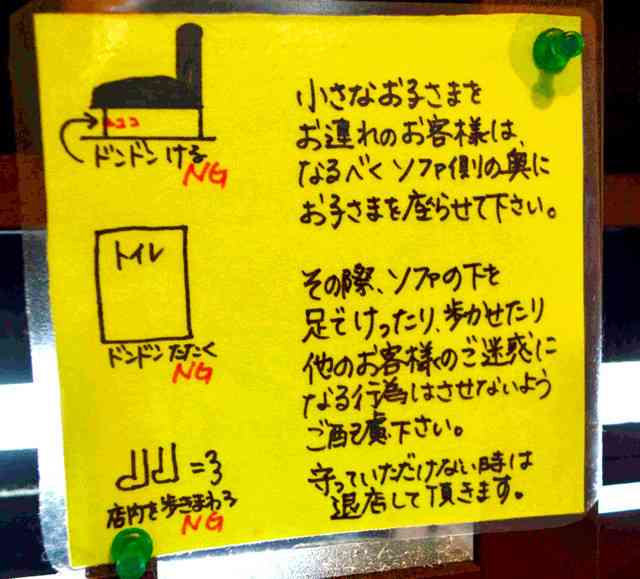 ココ
ドンドンける
NG
トイレ
ドンドンたたく
NG
=3
店内を歩きまわる
NG
小さなお子さまを
お連れのお客様は、
なるべくソファ側の奥に
お子さまを座らせて下さい。
その際、ソファの下を
足でけったり、歩かせたり
他のお客様のご迷惑に
なる行為はさせないよう
ご配慮下さい。
守っていただけない時は
退店して頂きます。